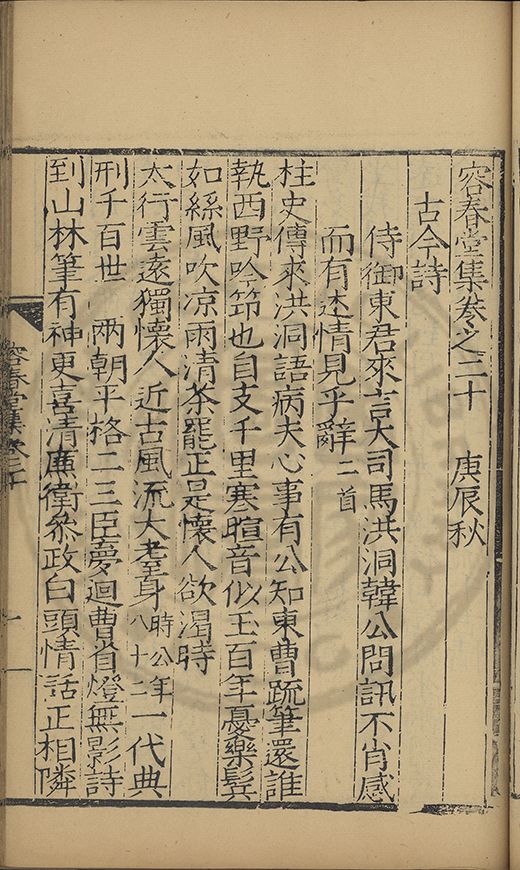 容春堂集卷之二十　庚辰秋
古今詩
侍御東君來言大司馬洪洞韓公問訊不肖感
而有述情見乎辭二首
柱史傳來洪洞語病夫心事有公知東曹疏筆還誰
執西野吟笻也自支千里寒暄音似玉百年憂樂鬂
如絲風吹凉雨清茶罷正是懷人欲渴時
太行雲遠獨懷人近古風流大老身時公年八十二一代典
刑千百世　兩朝平格二三臣夢迴曹省燈無影詩
到山林筆有神更喜清廉衛叅政白頭情話正相隣
容春堂集卷二十
一